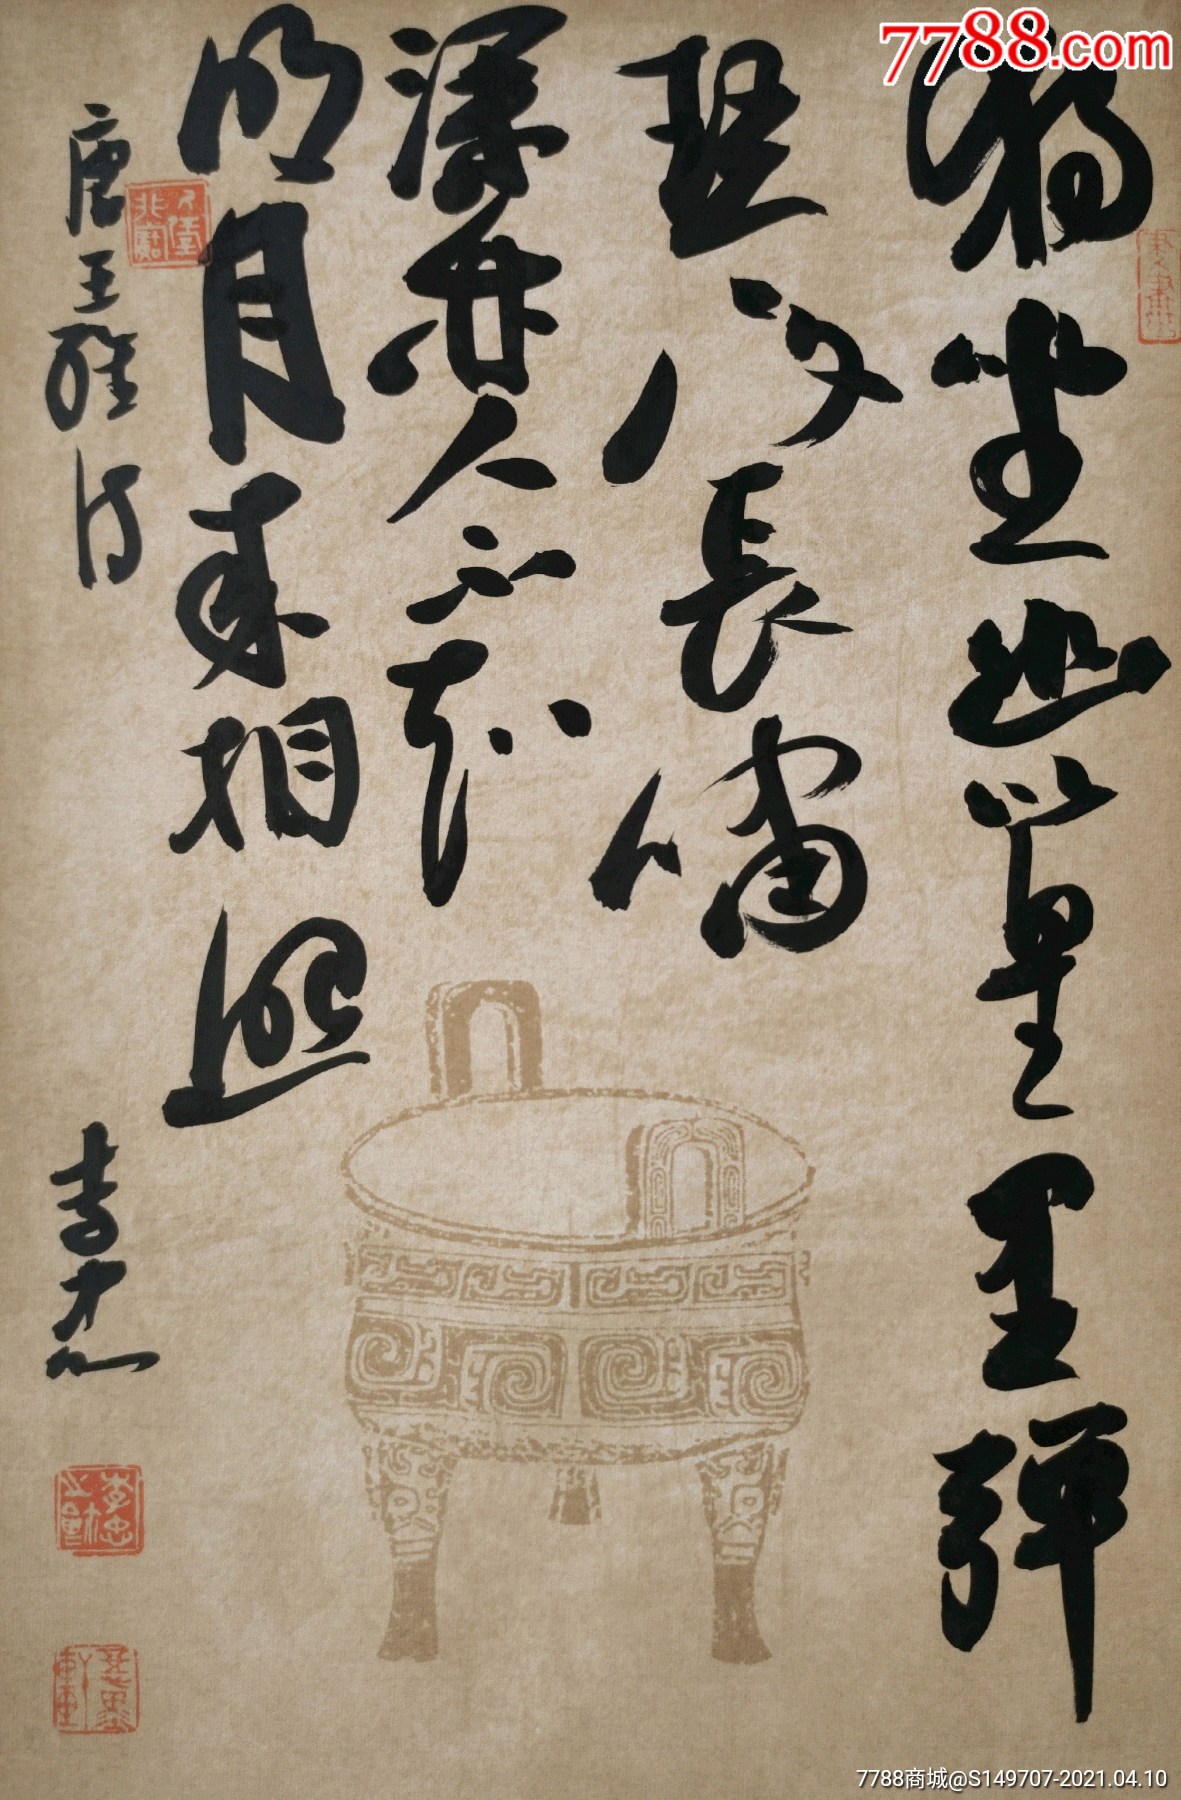 7788.com
獨坐幽篁里彈
琴復長嘯
深林人不知
明月來相照
唐王維詩
7788商城@S149707-2021.04.10